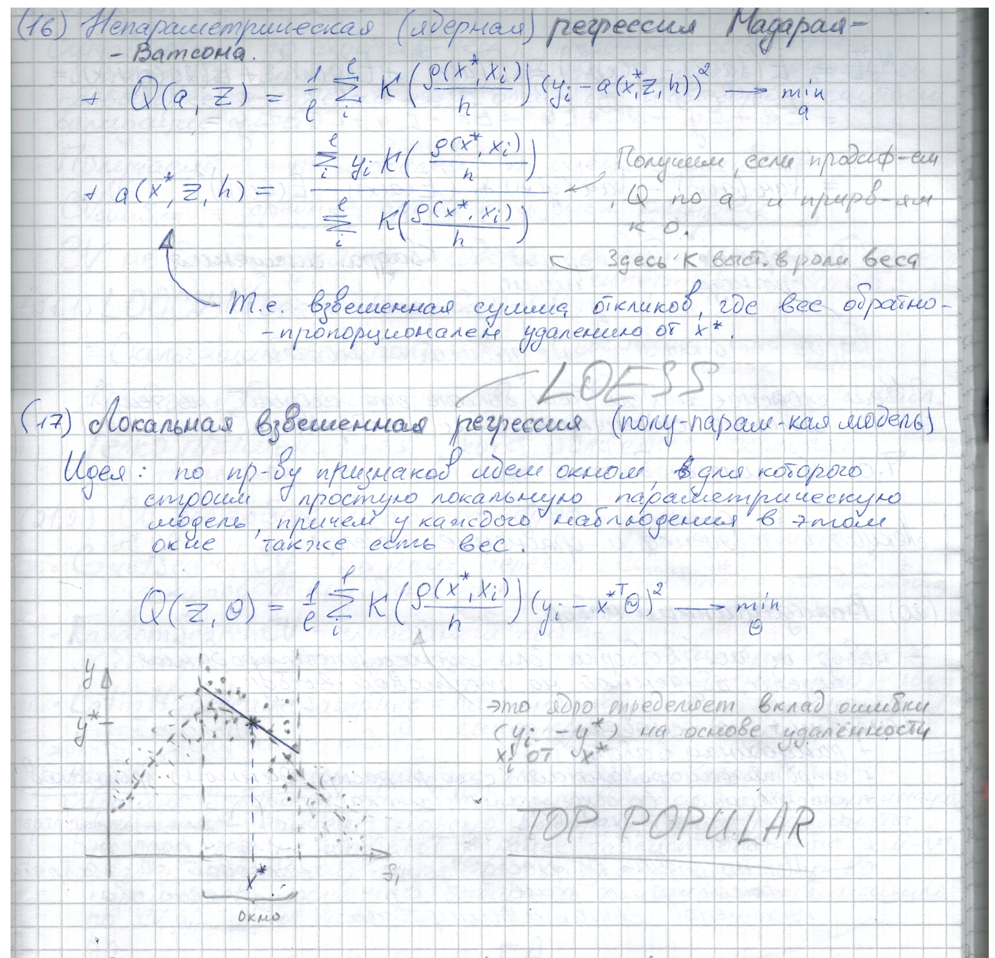 (16) Непараметрическая (ядерная) регрессия Надарая-
- Ватсона.
+ Q(a, z) = 1/ℓ ∑_i^ℓ K(ρ(x*, x_i)/h) (y_i - a(x*, z, h))² → min_a
+ a(x*, z, h) = ∑_i^ℓ y_i K(ρ(x*, x_i)/h) / ∑_i^ℓ K(ρ(x*, x_i)/h)
Получим, если продиф-ем
Q по a и прирв-ям
к 0.
Здесь K выст. в роли веса
Т.е. взвешенная сумма откликов, где вес обратно-
-пропорционален удалению от x*.
LOESS
(17) Локальная взвешенная регрессия (полу-парам-кая модель)
Идея: по пр-ву признаков идем окном, для которого
строим простую локальную параметрическую
модель, причем у каждого наблюдения в этом
окне также есть вес.
Q(z, θ) = 1/ℓ ∑_i^ℓ K(ρ(x*, x_i)/h) (y_i - x*ᵀθ)² → min_θ
это ядро определяет вклад ошибки
(y_i - y*) на основе удалённости
x_i от x*
TOP POPULAR
y
y*
x*
f₁
окно